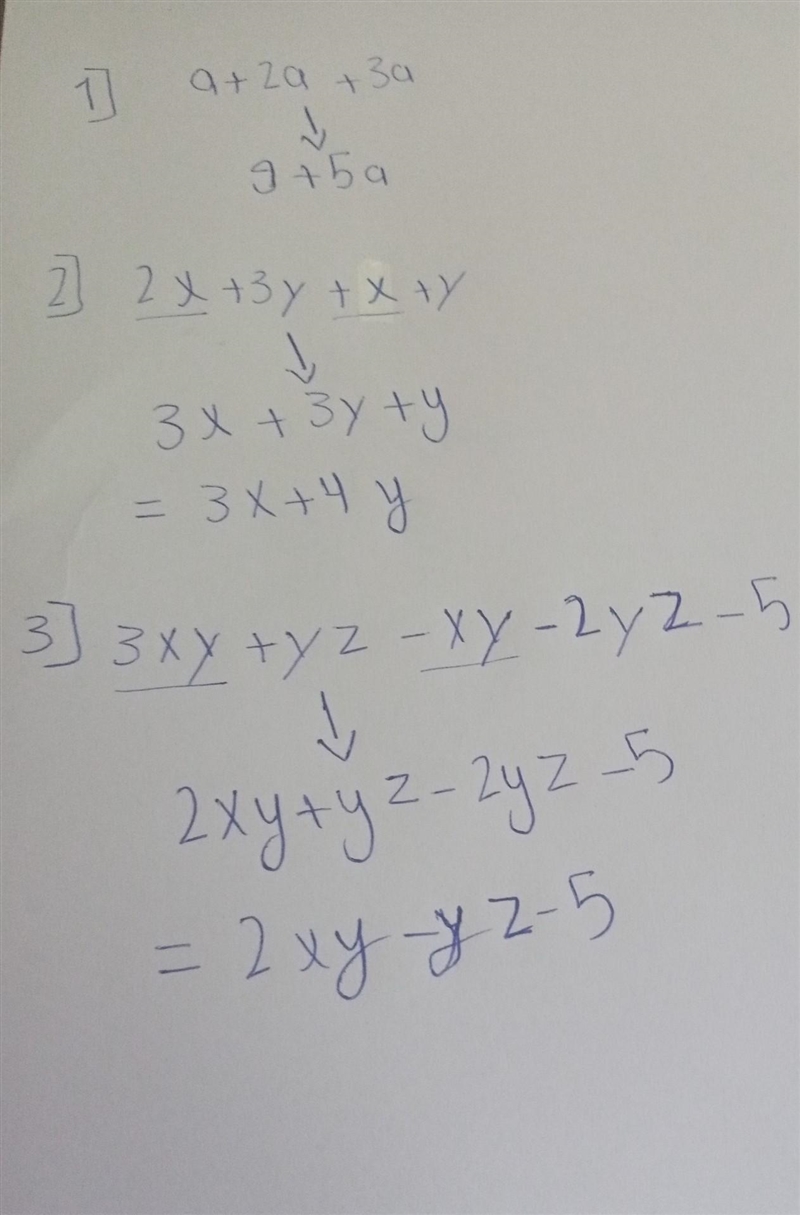 1] a+2a +3a
↓
a+5a
2] 2x +3y +x +y
↓
3x + 3y +y
= 3x+4 y
3] 3xy +yz -xy -2yz -5
↓
2xy+yz - 2yz -5
= 2xy -yz-5